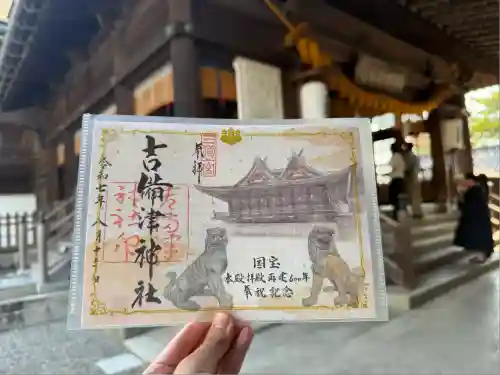 奉拝
三備一宮
吉備津神社
令和七年八月
国宝
本殿拝殿再建600年
奉祝記念